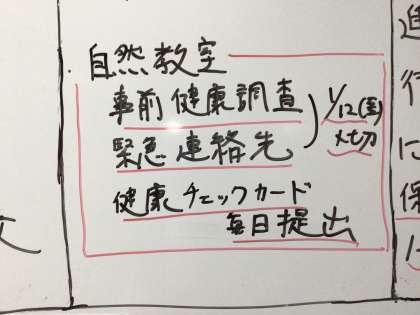 自然教室
事前健康調査
緊急連絡先
1/12(金)
〆切
健康チェックカード
毎日提出
進
行
に
保